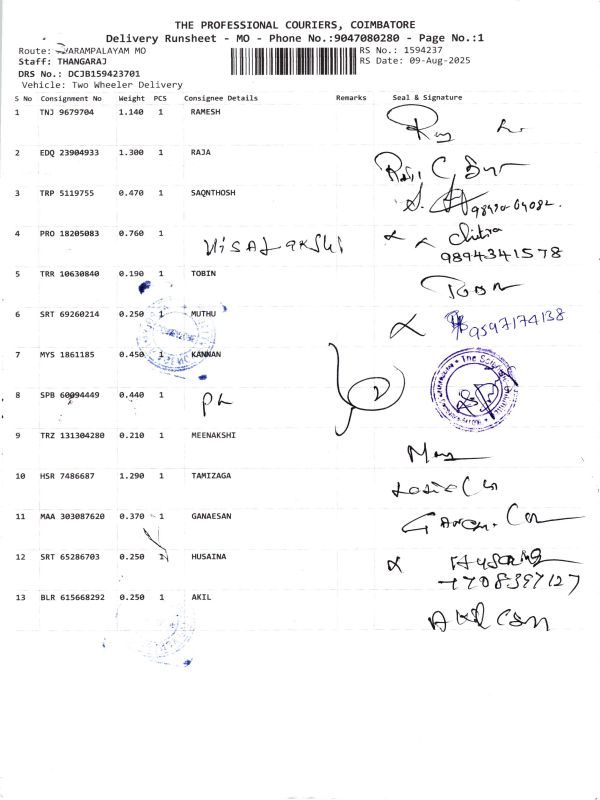 THE PROFESSIONAL COURIERS, COIMBATORE
Delivery Runsheet - MO - Phone No.:9047080280 - Page No.:1
Route: VARAMPALAYAM MO RS No.: 1594237
Staff: THANGARAJ RS Date: 09-Aug-2025
DRS No.: DCJB159423701
Vehicle: Two Wheeler Delivery
S No Consignment No Weight PCS Consignee Details Remarks Seal & Signature
1 TNJ 9679704 1.140 1 RAMESH
2 EDQ 23904933 1.300 1 RAJA
3 TRP 5119755 0.470 1 SAQNTHOSH
4 PRO 18205083 0.760 1 chitra
9894341578
5 TRR 10630840 0.190 1 TOBIN
6 SRT 69260214 0.250 1 MUTHU 9597174138
7 MYS 1861185 0.450 1 KANNAN
8 SPB 60094449 0.440 1
9 TRZ 131304280 0.210 1 MEENAKSHI
10 HSR 7486687 1.290 1 TAMIZAGA
11 MAA 303087620 0.370 1 GANAESAN
12 SRT 65286703 0.250 1 HUSAINA
13 BLR 615668292 0.250 1 AKIL